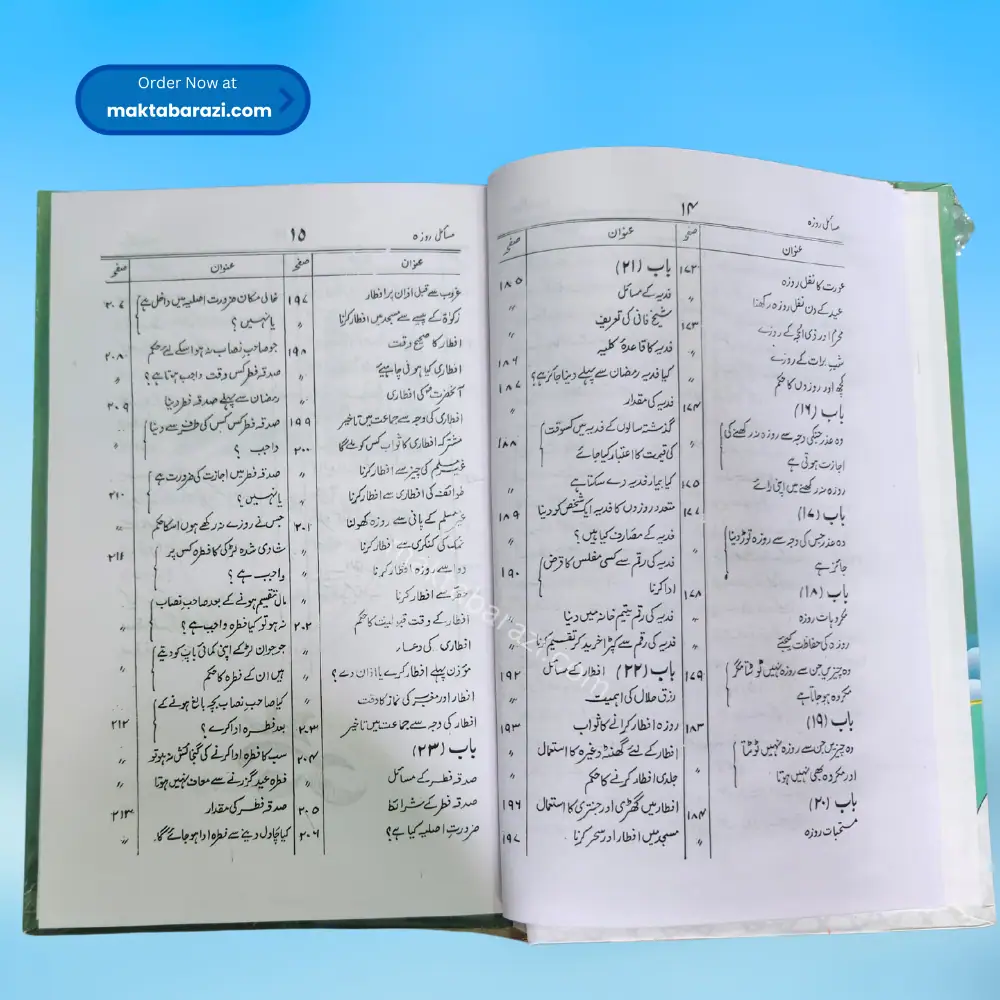 Order Now at
maktabarazi.com
۱۴
مسائل روزہ
عنوان
صفحہ
عورت کا نفل روزہ
۱۷۲
عید کے دن نفل روزہ رکھنا
〃
محرم اور ذی الحجہ کے روزے
۱۷۳
شب برات کے روزے
〃
کچھ اور روزوں کا حکم
〃
باب (۱۶)
۱۷۴
وہ عذر جنکی وجہ سے روزہ نہ رکھنے کی
اجازت ہوتی ہے
روزہ نہ رکھنے میں اپنی رائے
۱۷۵
باب (۱۷)
۱۷۷
وہ عذر جس کی وجہ سے روزہ توڑ دینا
جائز ہے
〃
باب (۱۸)
۱۷۸
مکروہات روزہ
روزہ کی حفاظت کیجئے
〃
وہ چیزیں جن سے روزہ نہیں ٹوٹتا مگر
۱۷۹
مکروہ ہو جاتا ہے
باب (۱۹)
۱۸۳
وہ چیزیں جن سے روزہ نہیں ٹوٹتا
اور مکروہ بھی نہیں ہوتا
〃
باب (۲۰)
۱۸۴
مستحبات روزہ
〃
عنوان
صفحہ
باب (۲۱)
۱۸۵
فدیہ کے مسائل
〃
شیخ فانی کی تعریف
〃
فدیہ کا قاعدۂ کلیہ
۱۸۶
کیا فدیہ رمضان سے پہلے دینا جائز ہے؟
۱۸۷
فدیہ کی مقدار
〃
گذشتہ سالوں کے فدیہ میں کس وقت
کی قیمت کا اعتبار کیا جائے
۱۸۸
کیا بیمار فدیہ دے سکتا ہے
〃
متعدد روزوں کا فدیہ ایک شخص کو دینا
۱۸۹
فدیہ کے مصارف کیا ہیں؟
〃
فدیہ کی رقم سے کسی مفلس کا قرض
ادا کرنا
۱۹۰
فدیہ کی رقم یتیم خانہ میں دینا
〃
فدیہ کی رقم سے کپڑا خرید کر تقسیم کرنا
〃
باب (۲۲) افطار کے مسائل
۱۹۲
رزق حلال کی اہمیت
〃
روزہ افطار کرانے کا ثواب
۱۹۳
افطار کے لئے گھنٹہ وغیرہ کا استعمال
〃
جلدی افطار کرنے کا حکم
〃
افطار میں گھڑی اور جنتری کا استعمال
۱۹۶
مسجد میں افطار اور سحر کرنا
۱۹۷
۱۵
مسائل روزہ
عنوان
صفحہ
غروب سے قبل اذان پر افطار
۱۹۷
زکوٰۃ کے پیسے سے مسجد میں افطار کرانا
〃
افطار کا صحیح وقت
۱۹۸
افطاری کیا ہونی چاہیئے
〃
آنحضرتؐ کی افطاری
〃
افطاری کی وجہ سے جماعت میں تاخیر
۱۹۹
مشترکہ افطاری کا ثواب کس کو ملے گا
۲۰۰
غیر مسلم کی چیز سے افطار کرنا
〃
طوائفہ کی افطاری سے افطار کرنا
〃
غیر مسلم کے پانی سے روزہ کھولنا
۲۰۱
نمک کی کنکری سے افطار کرنا
〃
دوا سے روزہ افطار کرنا
〃
حقہ سے افطار کرنا
〃
افطار کے وقت قبولیت کا حکم
۲۰۲
افطاری کی دعاء
〃
مؤذن پہلے افطار کرے یا اذان دے؟
〃
افطار اور مغرب کی نماز کا وقت
〃
افطار کی وجہ سے جماعت میں تاخیر
۲۰۳
باب (۲۳)
۲۰۴
صدقہ فطر کے مسائل
〃
صدقہ فطر کے شرائط
۲۰۵
ضرورتِ اصلیہ کیا ہے؟
۲۰۶
عنوان
صفحہ
خالی مکان ضرورت اصلیہ میں داخل ہے
۲۰۷
یا نہیں؟
جو صاحب نصاب نہ ہو اسکے لئے حکم
۲۰۸
صدقہ فطر کس وقت واجب ہوتا ہے؟
〃
رمضان سے پہلے صدقہ فطر دینا
۲۰۹
صدقہ فطر کس کس کی طرف سے دینا
واجب ؟
〃
صدقہ فطر میں اجازت کی ضرورت ہے
۲۱۰
یا نہیں؟
جس نے روزے نہ رکھے ہوں اسکا حکم
〃
شادی شدہ لڑکی کا فطرہ کس پر
۲۱۱
واجب ہے؟
مال تقسیم ہونے کے بعد صاحب نصاب
نہ ہو تو کیا فطرہ واجب ہے؟
〃
جو جوان لڑکے اپنی کمائی باپ کو دیتے
ہیں ان کے فطرہ کا حکم
〃
کیا صاحب نصاب بچہ بالغ ہونے کے
بعد فطرہ ادا کرے؟
۲۱۲
سب کا فطرہ ادا کرنے کی گنجائش نہ ہو تو
〃
فطرہ عید گزرنے سے معاف نہیں ہوتا
〃
صدقہ فطر کی مقدار
۲۱۳
کیا چاول دینے سے فطرہ ادا ہو جائے گا
〃
maktabarazi.com